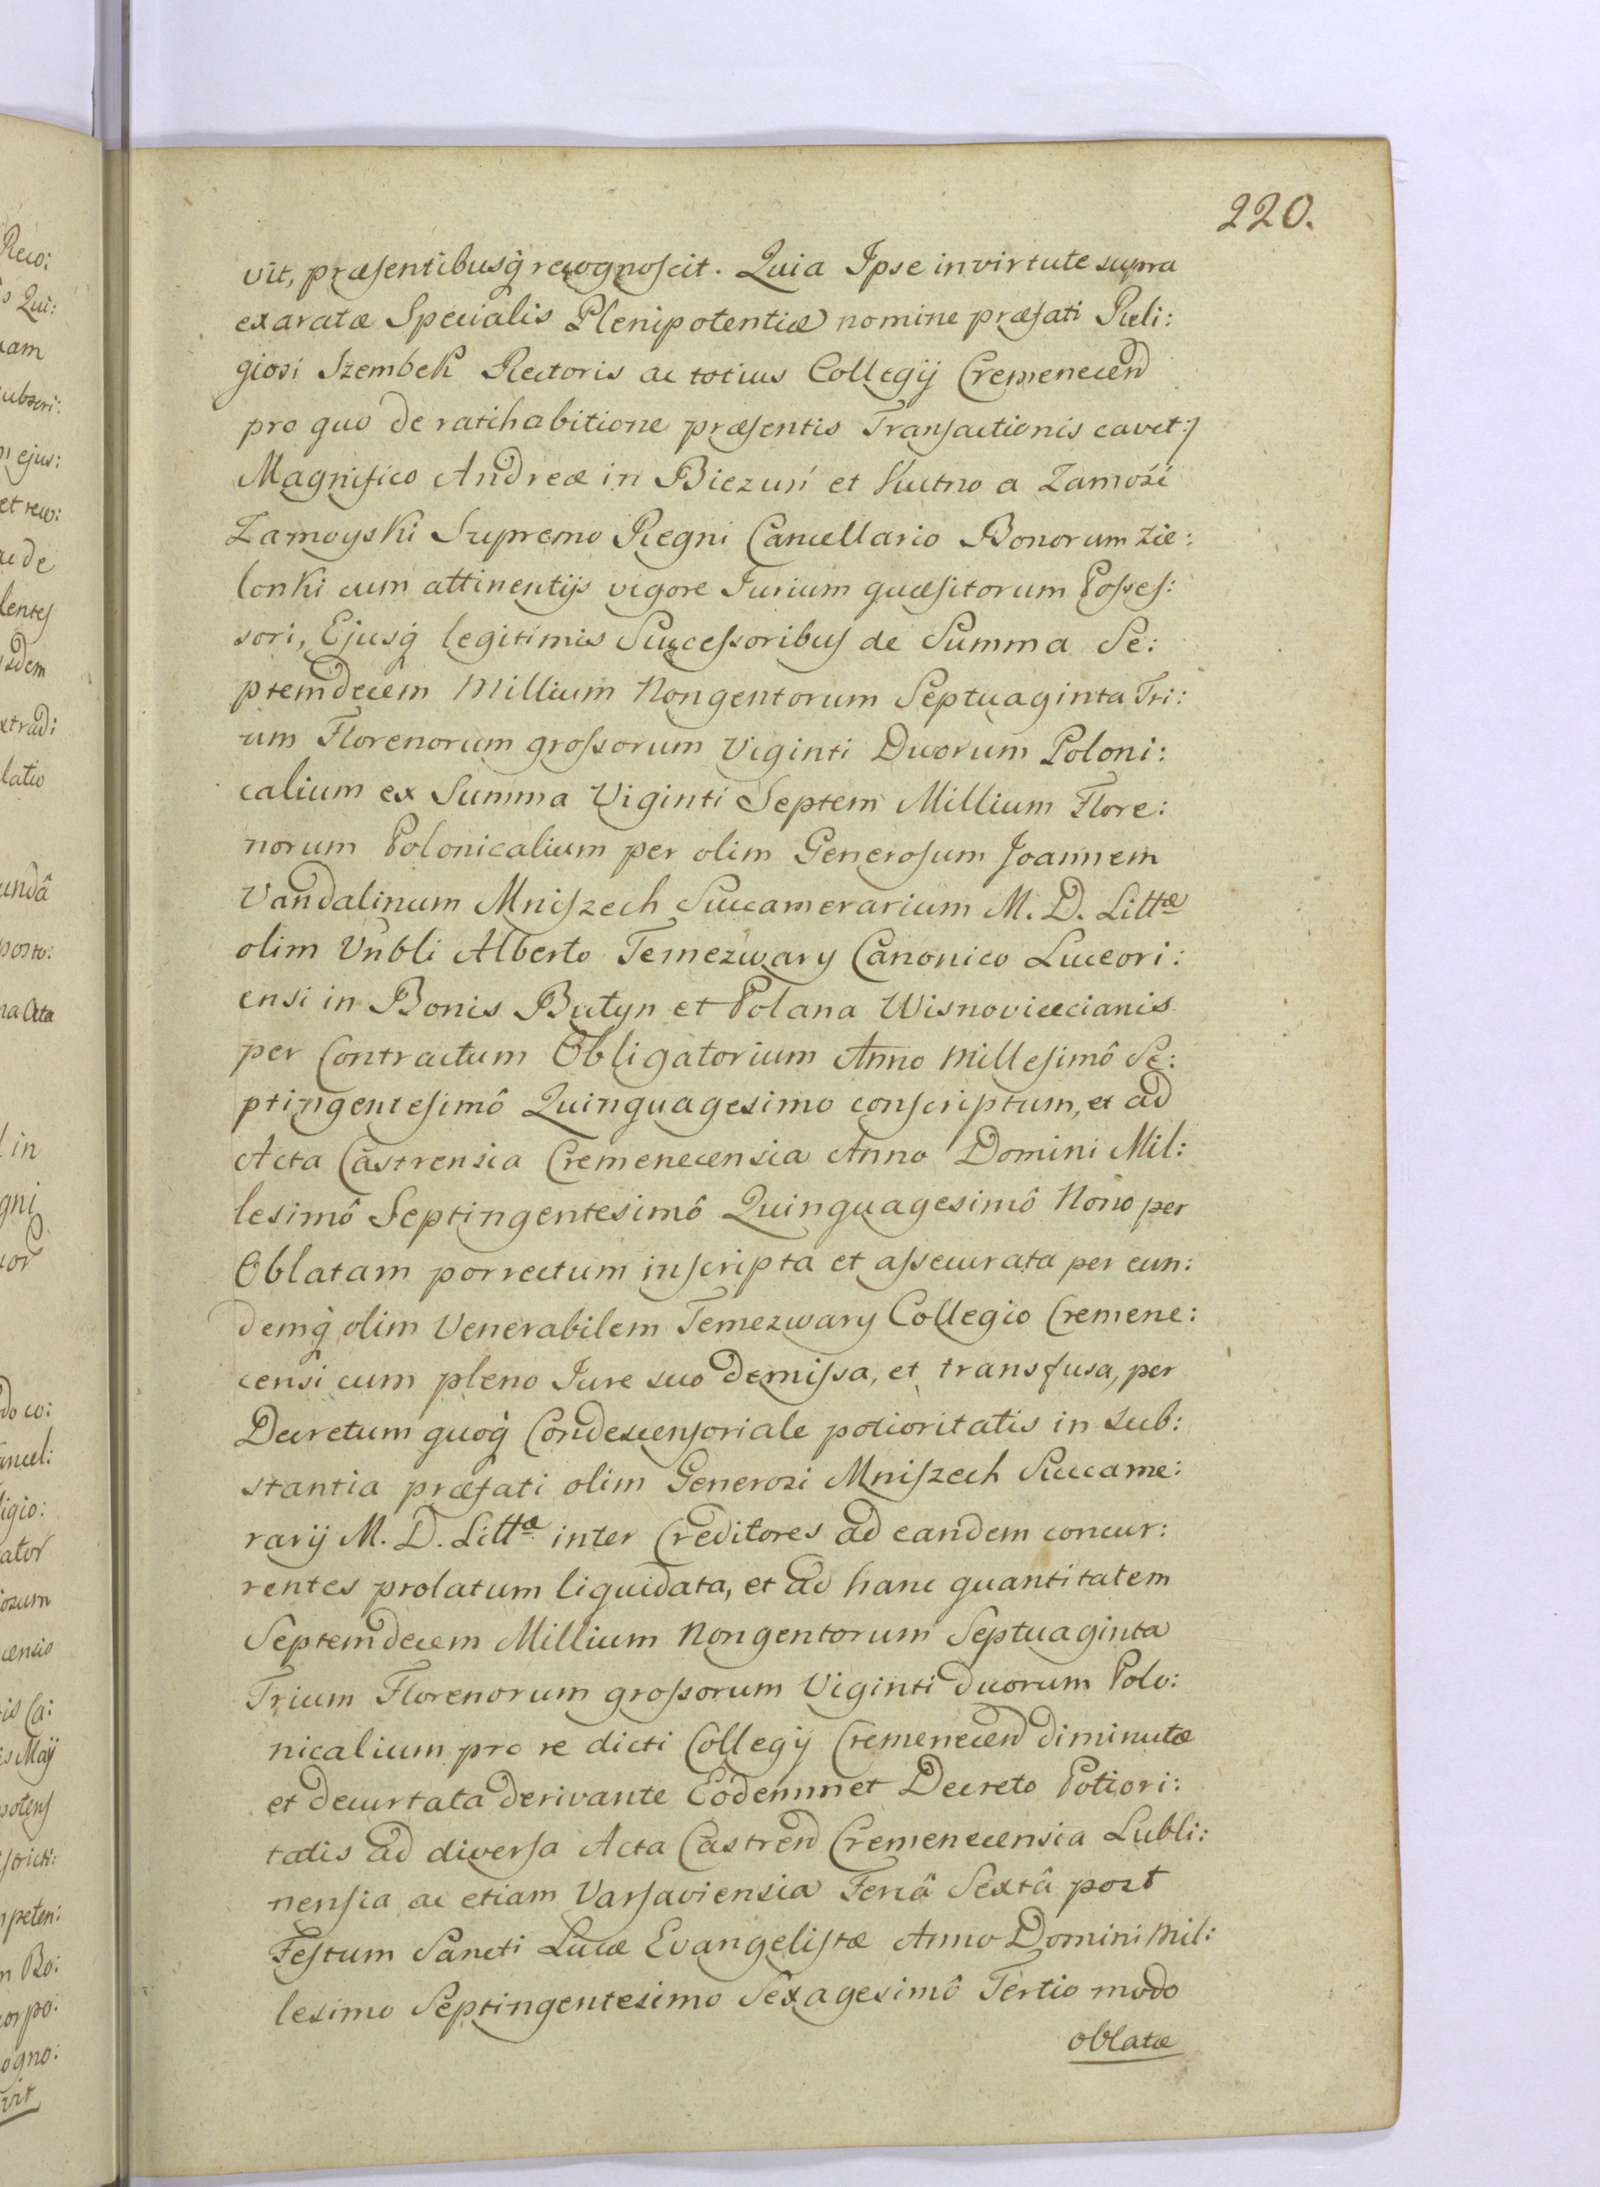 220.
vit, præsentibusq̀ recognoscit. Quia Ipse in virtute supra
exaratæ Specialis Plenipotentiæ nomine præfati Reli:
giosi Szembek Rectoris ac totius Collegij Cremenecen̄
pro quo de ratihabitione præsentis Transactionis cavet:/
Magnifico Andreæ in Biezuń et Kutno a Zamość
Zamoyski Supremo Regni Cancellario Bonorum Zie:
lonki cum attinentijs vigore Jurium quæsitorum Posses:
sori, Ejusq̀ legitimis Successoribus de Summa Se:
ptemdecem Millium Nongentorum Septuaginta Tri:
um Florenorum grossorum Viginti Duorum Poloni:
calium ex Summa Viginti Septem Millium Flore:
norum Polonicalium per olim Generosum Joannem
Vandalinum Mniszech Succamerarium M. D. Littæ
olim Vnbli Alberto Temezwary Canonico Luceori:
ensi in Bonis Butyn et Polana Wisnoviecianis
per Contractum Obligatorium Anno Millesimô Se:
ptingentesimô Quinquagesimo conscriptum, et ad
Acta Castrensia Cremenecensia Anno Domini Mil:
lesimô Septingentesimô Quinquagesimô Nono per
Oblatam porrectum inscripta et assecurata per eun:
demq̀ olim Venerabilem Temezwary Collegio Cremene:
censi cum pleno Jure suo demissa, et transfusa, per
Decretum quoq̀ Condescensoriale potioritatis in sub:
stantia præfati olim Generosi Mniszech Succame:
rarij M. D. Littæ inter Creditores ad eandem concur:
rentes prolatum liquidata, et ad hanc quantitatem
Septemdecem Millium Nongentorum Septuaginta
Trium Florenorum grossorum Viginti duorum Polo:
nicalium pro re dicti Collegij Cremenecen̄ diminutæ
et decurtata derivante Eodemmet Decreto Potiori:
tatis ad diversa Acta Castren̄ Cremenecensia Lubli:
nensia ac etiam Varsaviensia Feriâ Sextâ post
Festum Sancti Lucæ Evangelistæ Anno Domini Mil:
lesimo Septingentesimo Sexagesimô Tertio modo
oblatæ